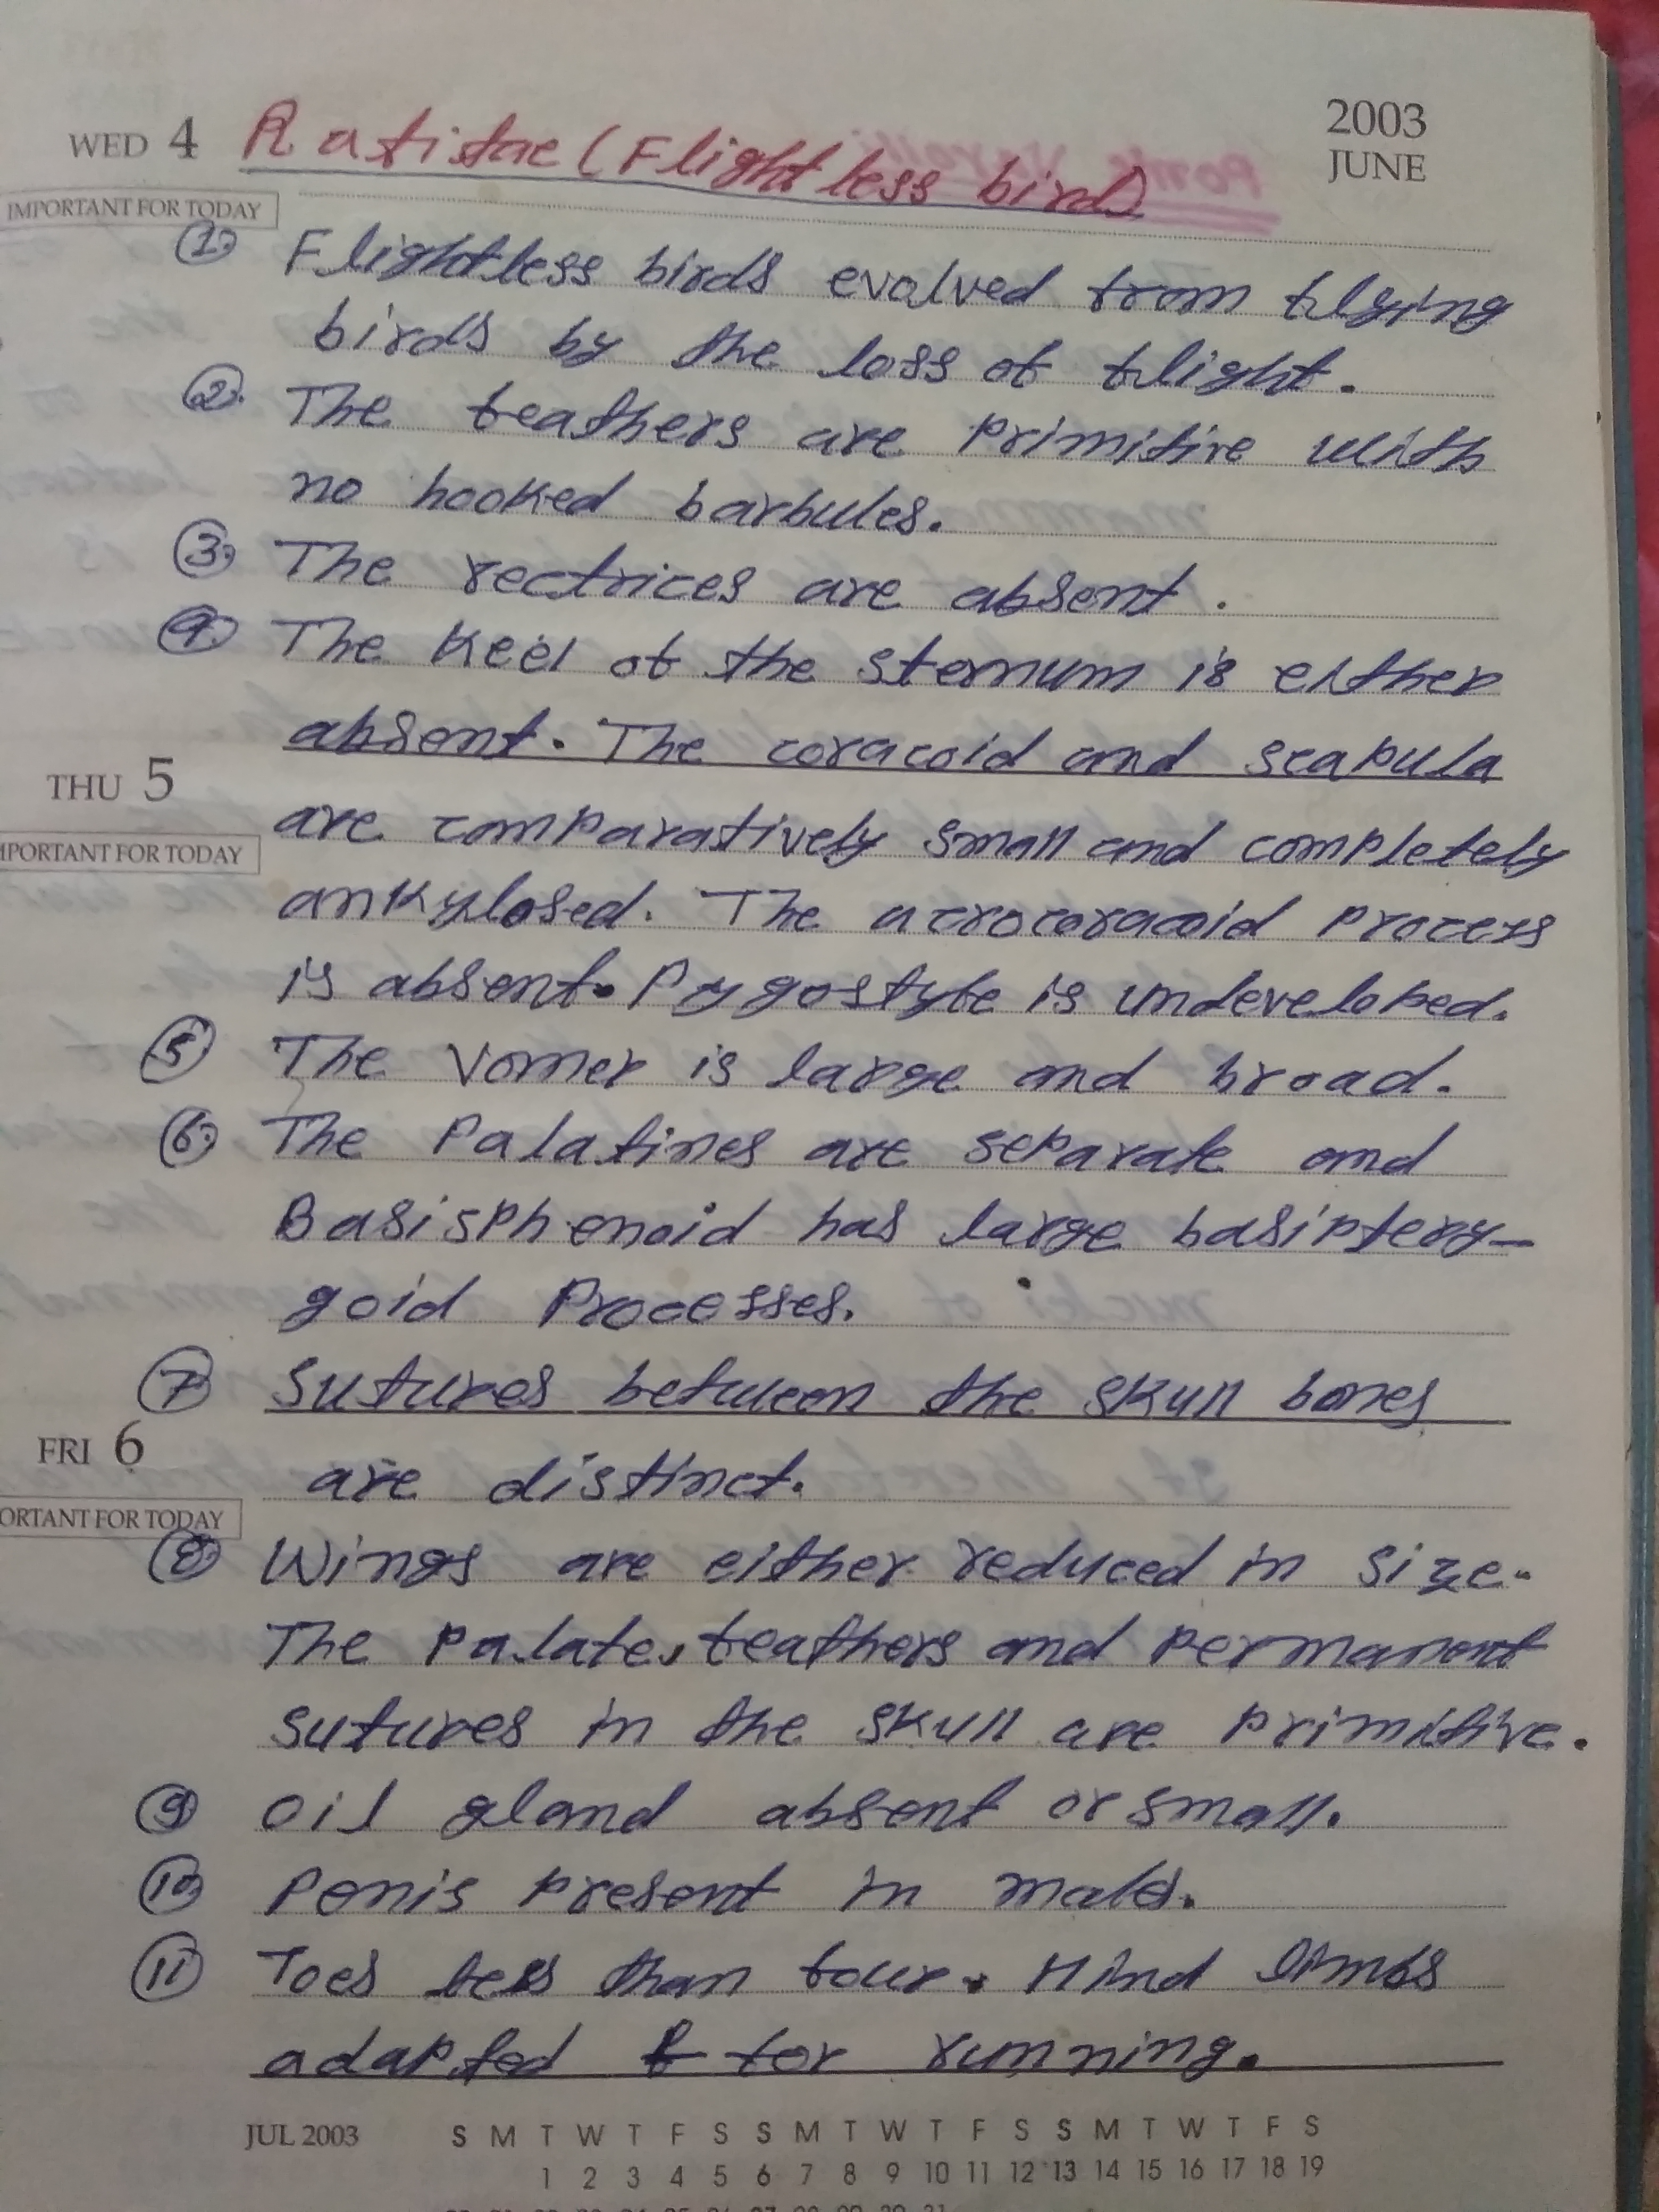 WED 4 Ratistae (Flightless bird)
2003
JUNE
IMPORTANT FOR TODAY
① Flightless birds evolved from flying
birds by the loss of flight.
② The feathers are primitive with
no hooked barbules.
③ The rectrices are absent.
④ The Keel of the sternum is either
absent. The coracoid and scapula
THU 5
are comparatively small and completely
IMPORTANT FOR TODAY
ankylosed. The acrocoracoid process
is absent. Pygostyle is undeveloped.
⑤ The Vomer is large and broad.
⑥ The Palatines are separate and
Basisphenoid has large basiptery-
goid Processes.
⑦ Sutures between the skull bones
FRI 6
are distinct.
ORTANT FOR TODAY
⑧ Wings are either reduced in size.
The palate, feathers and permanent
sutures in the skull are primitive.
⑨ Oil gland absent or small.
⑩ Penis present in males.
⑪ Toes less than four. Hind limbs
adapted for running.
JUL 2003 S M T W T F S S M T W T F S S M T W T F S
1 2 3 4 5 6 7 8 9 10 11 12 13 14 15 16 17 18 19